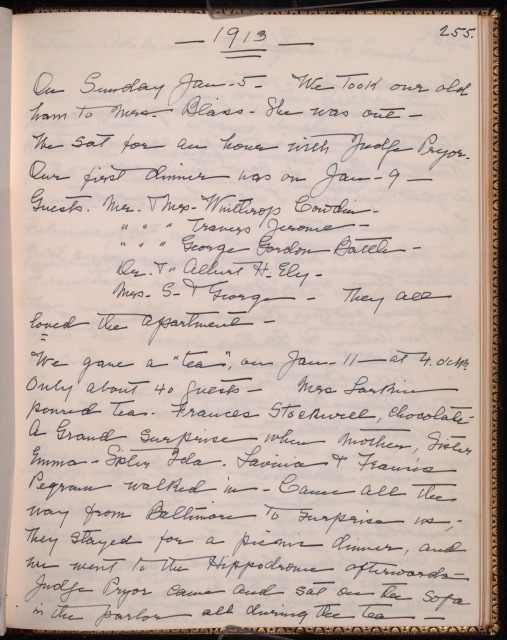 255.
— 1913 —
On Sunday Jan-5- We took our old
ham to Mrs- Blass- She was out -
We sat for an hour with Judge Pryor-
Our first dinner was on Jan-9-
Guests. Mr. & Mrs- Winthrop Cowdin-
" " " Travers Jerome-
" " " George Gordon Battle-
Dr. & " Albert H. Ely-
Mrs- S- & George - They all
loved the apartment-
We gave a "tea", on Jan-11- at 4. o'clk.
Only about 40 guests- Mrs Larkin
poured tea. Frances Stockwell, chocolate-
A Grand Surprise when Mother, Sister
Emma- Sister Ida- Lavinia & Francis
Pegram walked in- Came all the
way from Baltimore to surprise us-
They stayed for a picnic dinner, and
we went to the Hippodrome afterwards-
Judge Pryor came and sat on the sofa
in the parlor all during the tea-